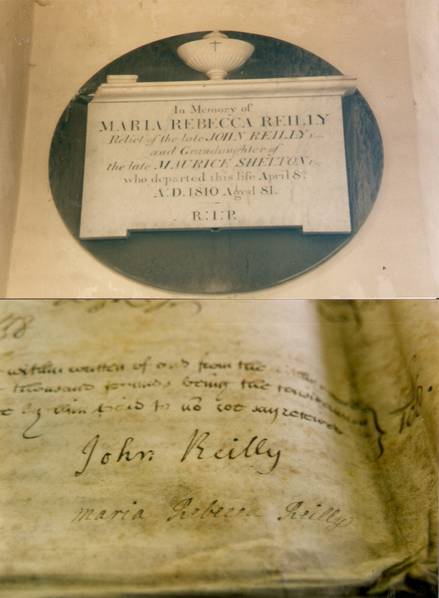 In Memory of
MARIA REBECCA REILLY
Relict of the late JOHN REILLY
and Grandaughter of
the late MAURICE SHELTON
who departed this life April 8
A.D. 1810 Aged 81.
R.I.P.
within written of and from the
thousand pounds being the
by him to us
John Reilly
maria Rebecca Reilly